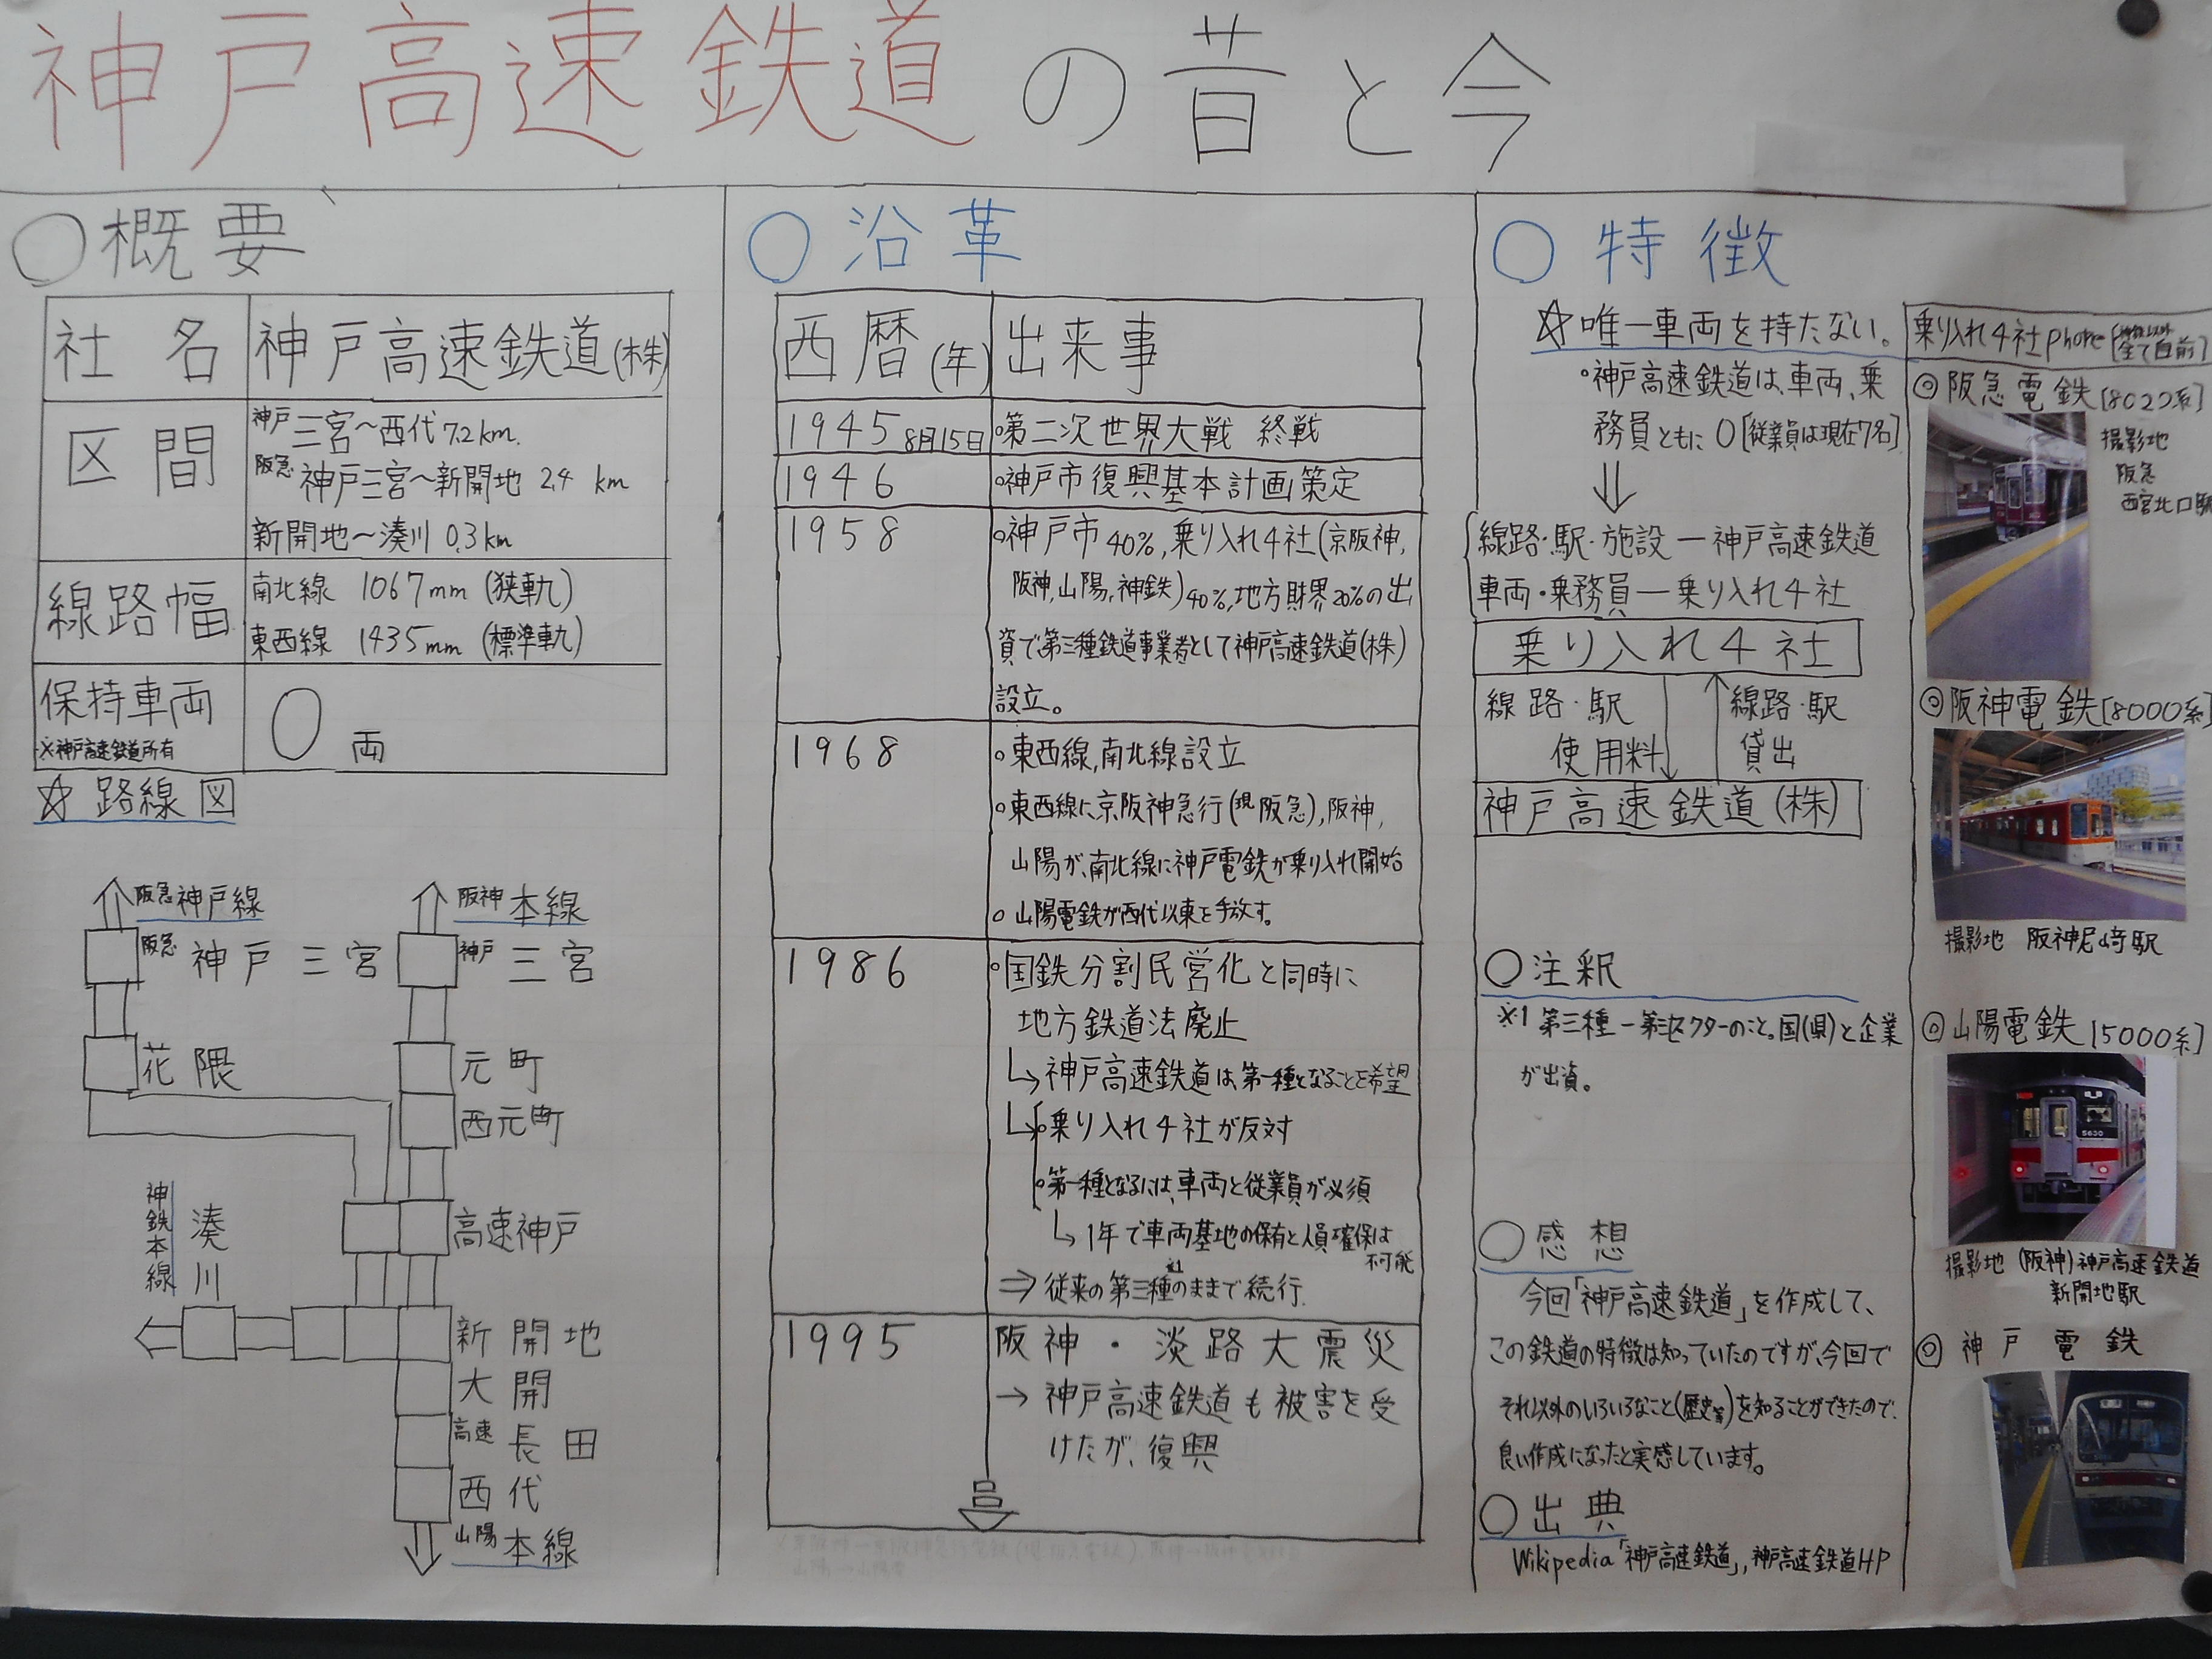 神戸高速鉄道の昔と今
○概要
社名 神戸高速鉄道(株)
区間 神戸三宮〜西代 7.2km.
阪急神戸三宮〜新開地 2.4 km
新開地〜湊川 0.3km
線路幅 南北線 1067mm (狭軌)
東西線 1435mm (標準軌)
保持車両 0両
※神戸高速鉄道所有
☆路線図
阪急神戸線
阪神本線
阪急神戸三宮
神戸三宮
花隈
元町
西元町
高速神戸
神鉄本線
湊川
新開地
大開
高速長田
西代
山陽本線
○沿革
西暦(年) 出来事
1945 8月15日 ◦第二次世界大戦 終戦
1946 ◦神戸市復興基本計画策定
1958 ◦神戸市40%,乗り入れ4社(京阪神,
阪神,山陽,神鉄)40%,地方財界20%の出
資で、第三種鉄道事業者として神戸高速鉄道(株)
設立。
1968 ◦東西線,南北線設立
◦東西線に京阪神急行(現阪急),阪神,
山陽が、南北線に神戸電鉄が乗り入れ開始
◦山陽電鉄が西代以東を手放す。
1986 ◦国鉄分割民営化と同時に
地方鉄道法廃止
↳神戸高速鉄道は、第一種となることを希望
↳◦乗り入れ4社が反対
◦第一種となるには、車両と従業員が必須
↳1年で車両基地の保有と人員確保は
不可能
⇒従来の第三種※1のままで続行.
1995 阪神・淡路大震災
→神戸高速鉄道も被害を受
けたが、復興
○特徴
☆唯一車両を持たない。
◦神戸高速鉄道は、車両、乗
務員ともに0[従業員は現在7名]
⇓
線路・駅・施設ー神戸高速鉄道
車両・乗務員ー乗り入れ4社
乗り入れ4社
線路・駅
使用料
線路・駅
貸出
神戸高速鉄道(株)
○注釈
※1 第三種ー第三セクターのこと。国(県)と企業
が出資。
○感想
今回「神戸高速鉄道」を作成して、
この鉄道の特徴は知っていたのですが、今回で
それ以外のいろいろなこと(歴史等)を知ることができたので、
良い作成になったと実感しています。
○出典
Wikipedia「神戸高速鉄道」,神戸高速鉄道HP
乗り入れ4社phore
全て自前]
◎阪急電鉄[8020系]
撮影地
阪急
西宮北口駅
◎阪神電鉄[8000系]
撮影地 阪神尼崎駅
◎山陽電鉄[5000系]
5630
撮影地 (阪神)神戸高速鉄道
新開地駅
◎神戸電鉄